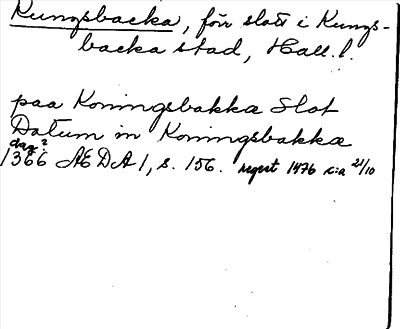 Kungsbacka, förr slott i Kungs-
backa stad, Hall. l.
paa Koningsbakka Slot
Datum in Koningsbakka
dag?
1366 AEDA 1, s. 156. regest 1476 c:a 21/10